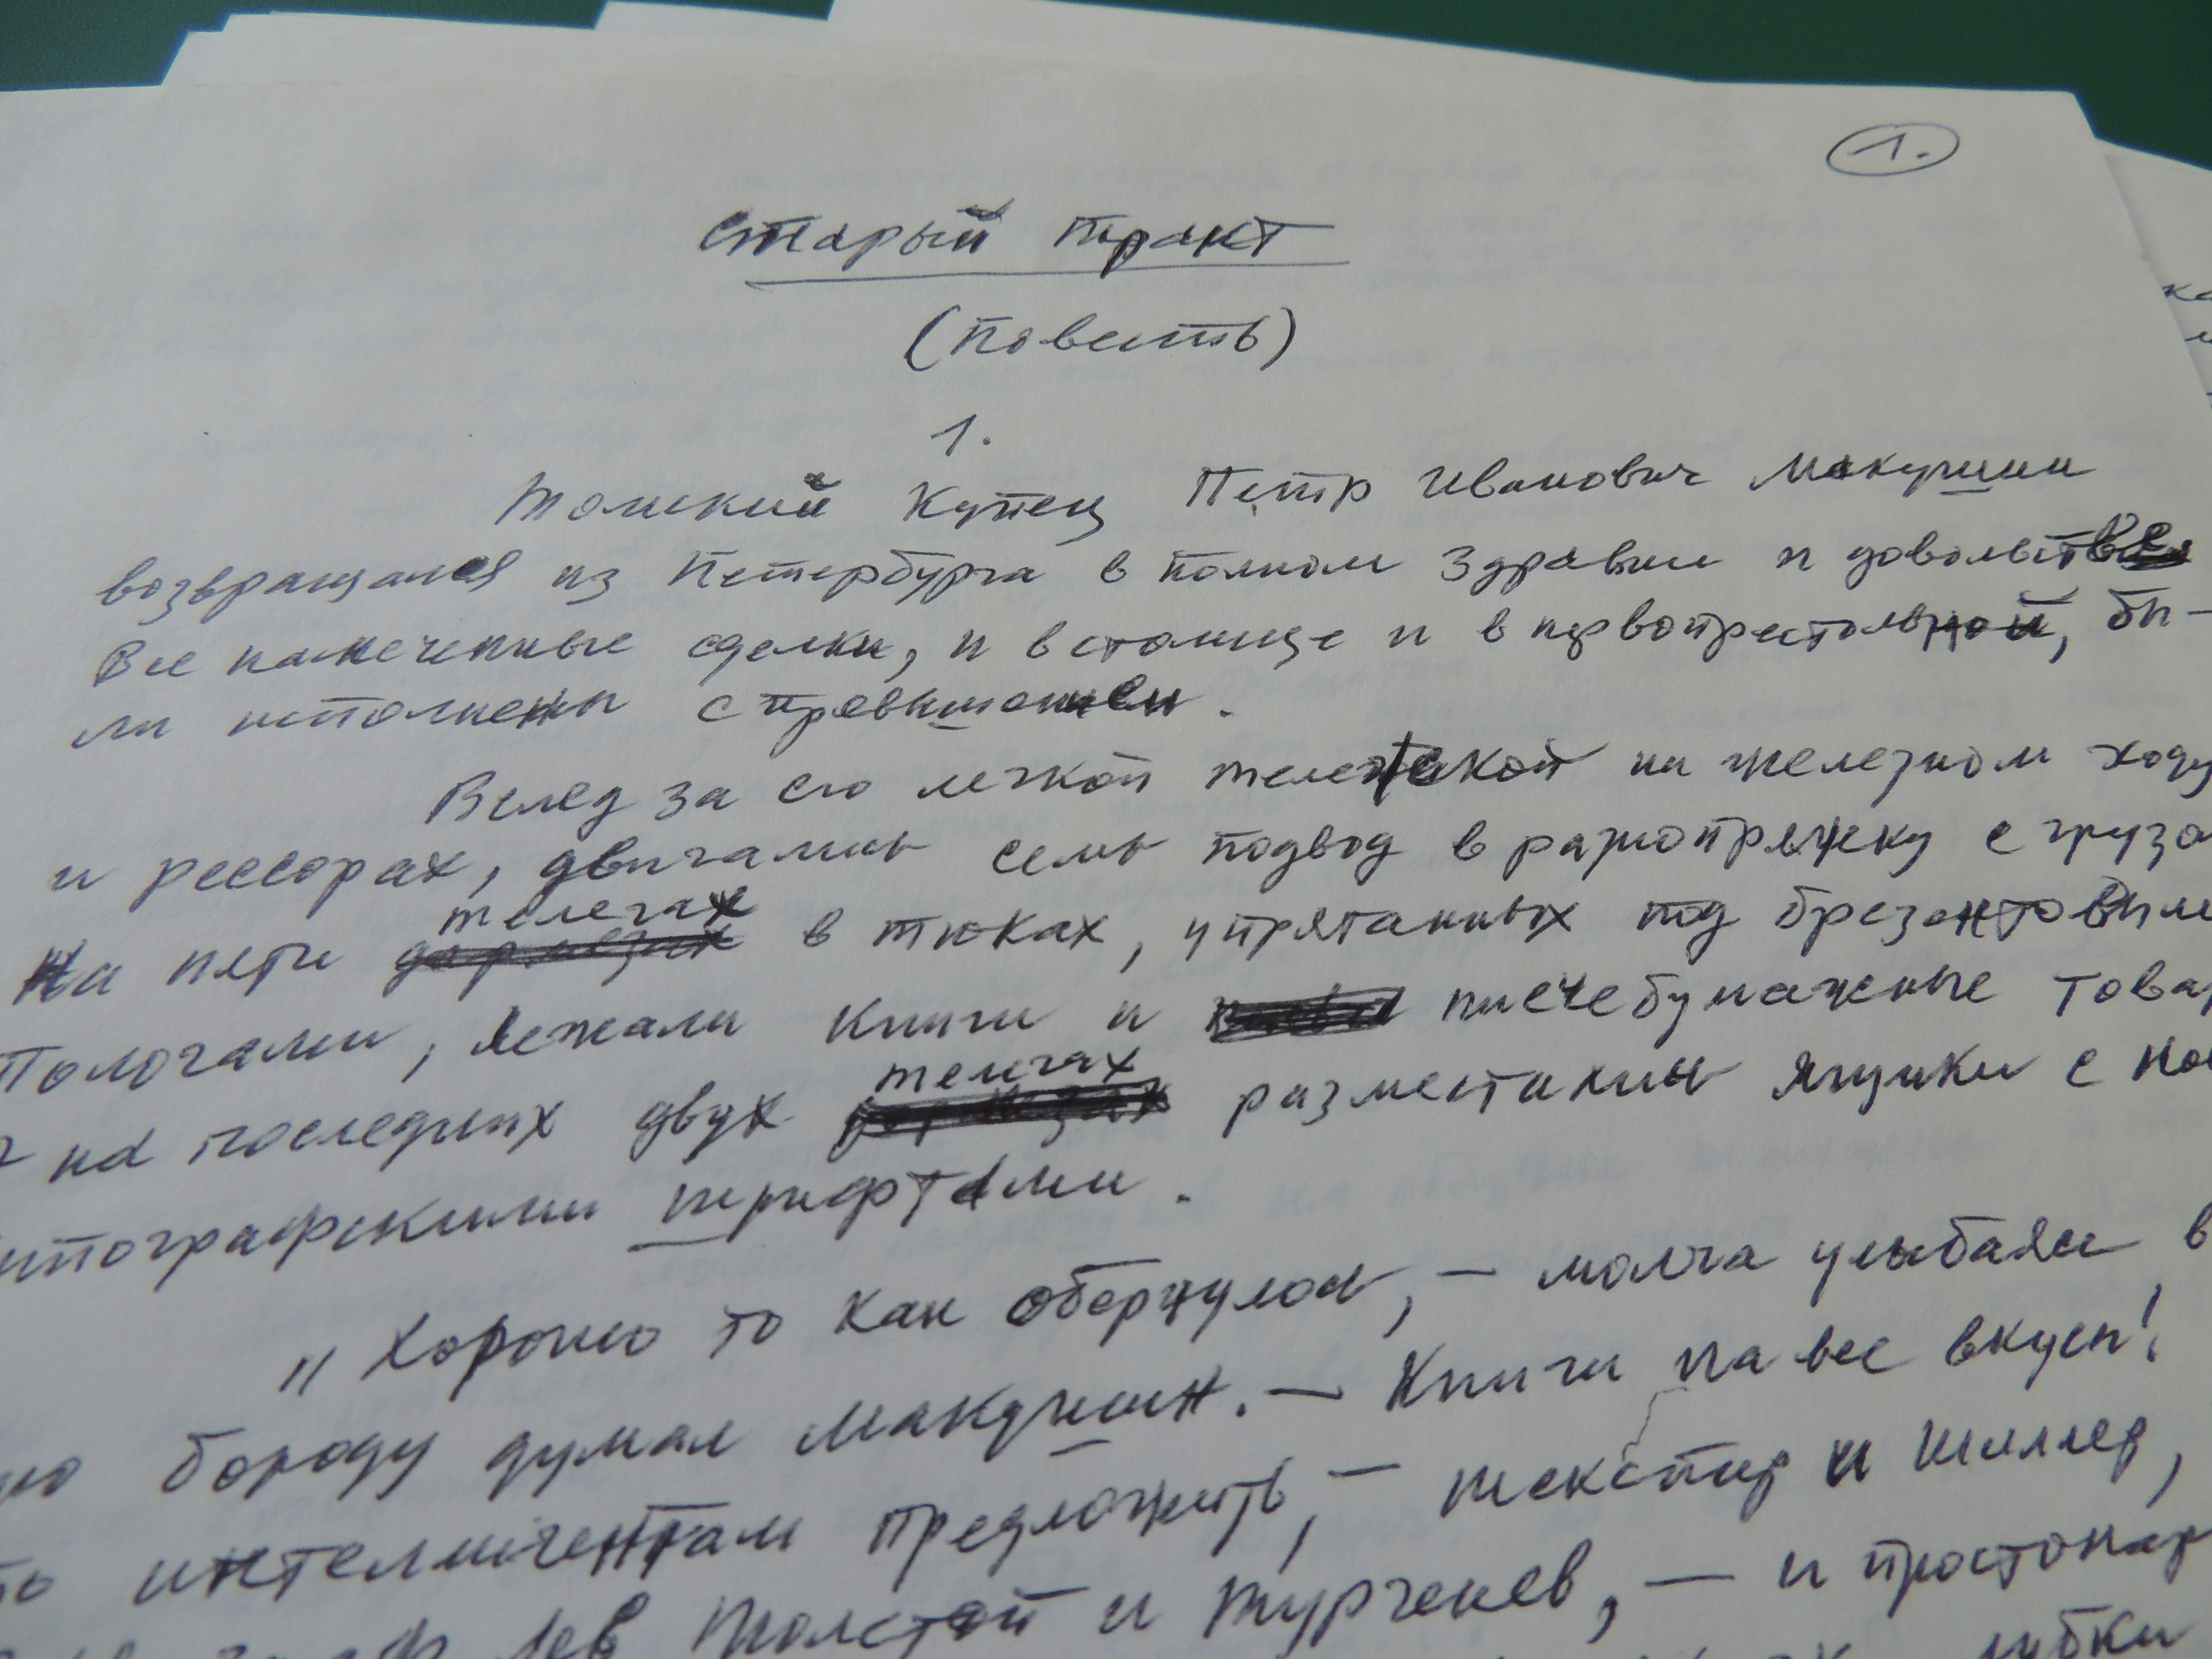 1.
Старый тракт
(повесть)
1.
Томский купец Петр Иванович Макушин
возвращался из Петербурга в полном здравии и довольстве.
Все намеченные сделки, и в столице и в первопрестольной, бы-
ли исполнены с превышением.
Вслед за его легкой тележкой на железном ходу
и рессорах, двигались семь подвод в разнопряжку с грузо
телегах
На пяти в тюках, упрятанных под брезентовыми
пологами, лежали книги и писчебумажные товар
телегах
на последних двух разместились ящики с но
ипографскими шрифтами.
„Хорошо то как обернулось, – молча улыбаясь в
ую бороду думал Макушин. – Книги на все вкусы!
ть интеллигентам предложить, – Шекспир и Шиллер,
Лев Толстой и Тургенев, – и простонар
лубки